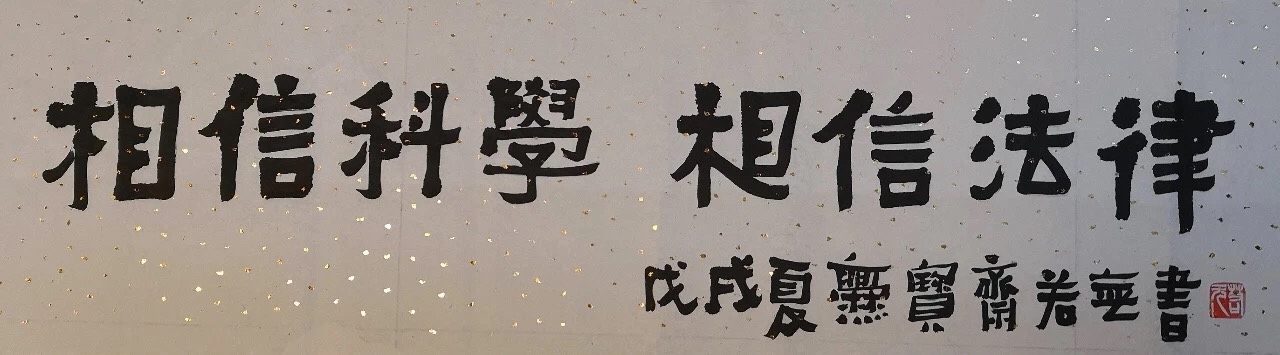 相信科學 相信法律
戊戌夏爨寶齋若無書